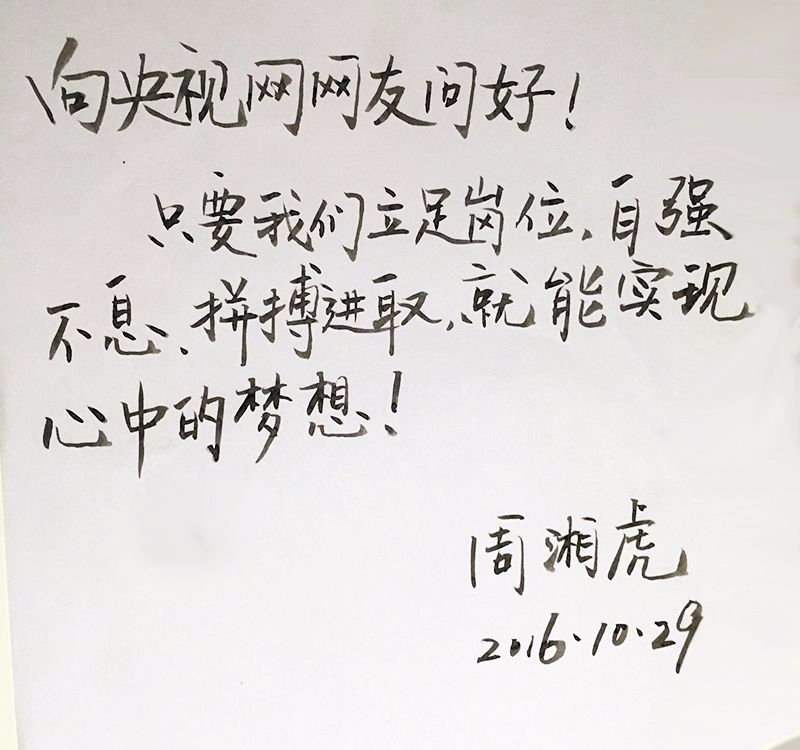 向央视网网友问好!
只要我们立足岗位,自强
不息、拼搏进取,就能实现
心中的梦想!
周湘虎
2016.10.29